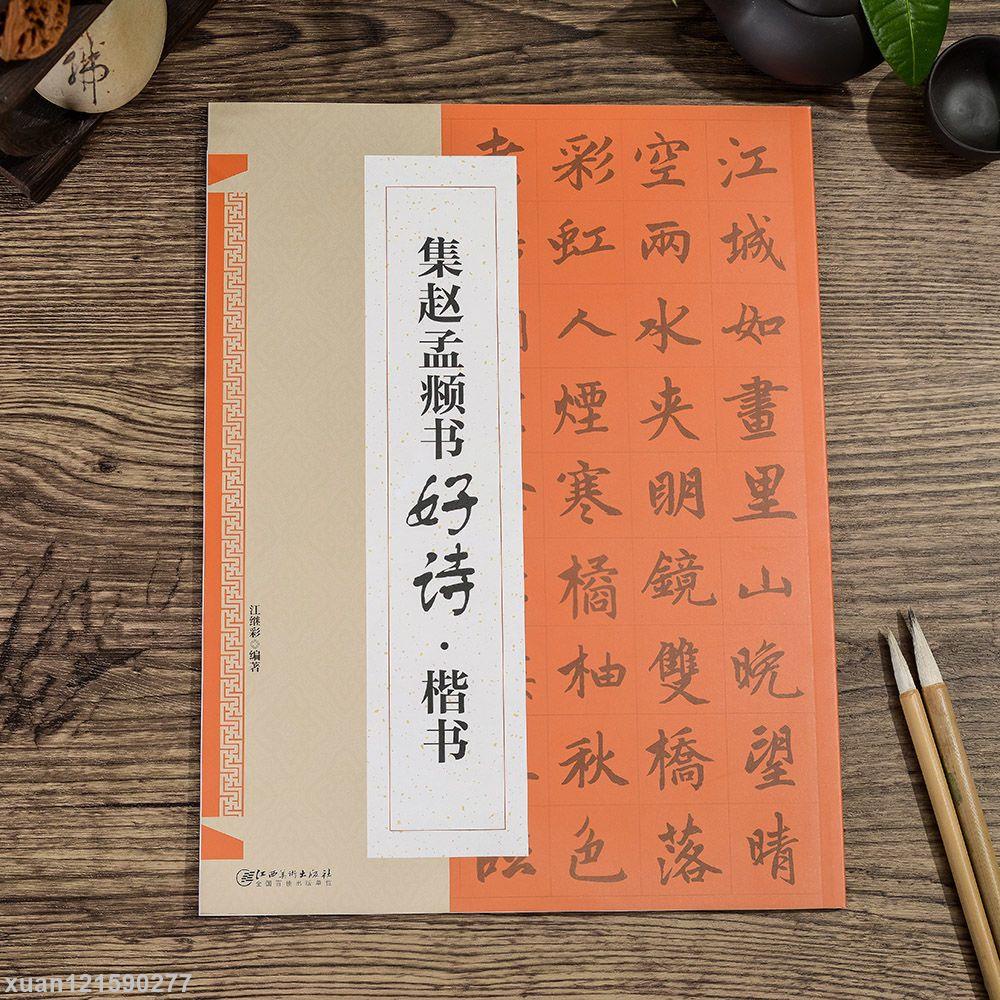 集赵孟𫖯书好诗·楷书
江城如畫里山晚望晴
空兩水夾明鏡雙橋落
彩虹人煙寒橘柚秋色
江继彩 编著
江西美术出版社
全国百佳出版单位
xuan121590277